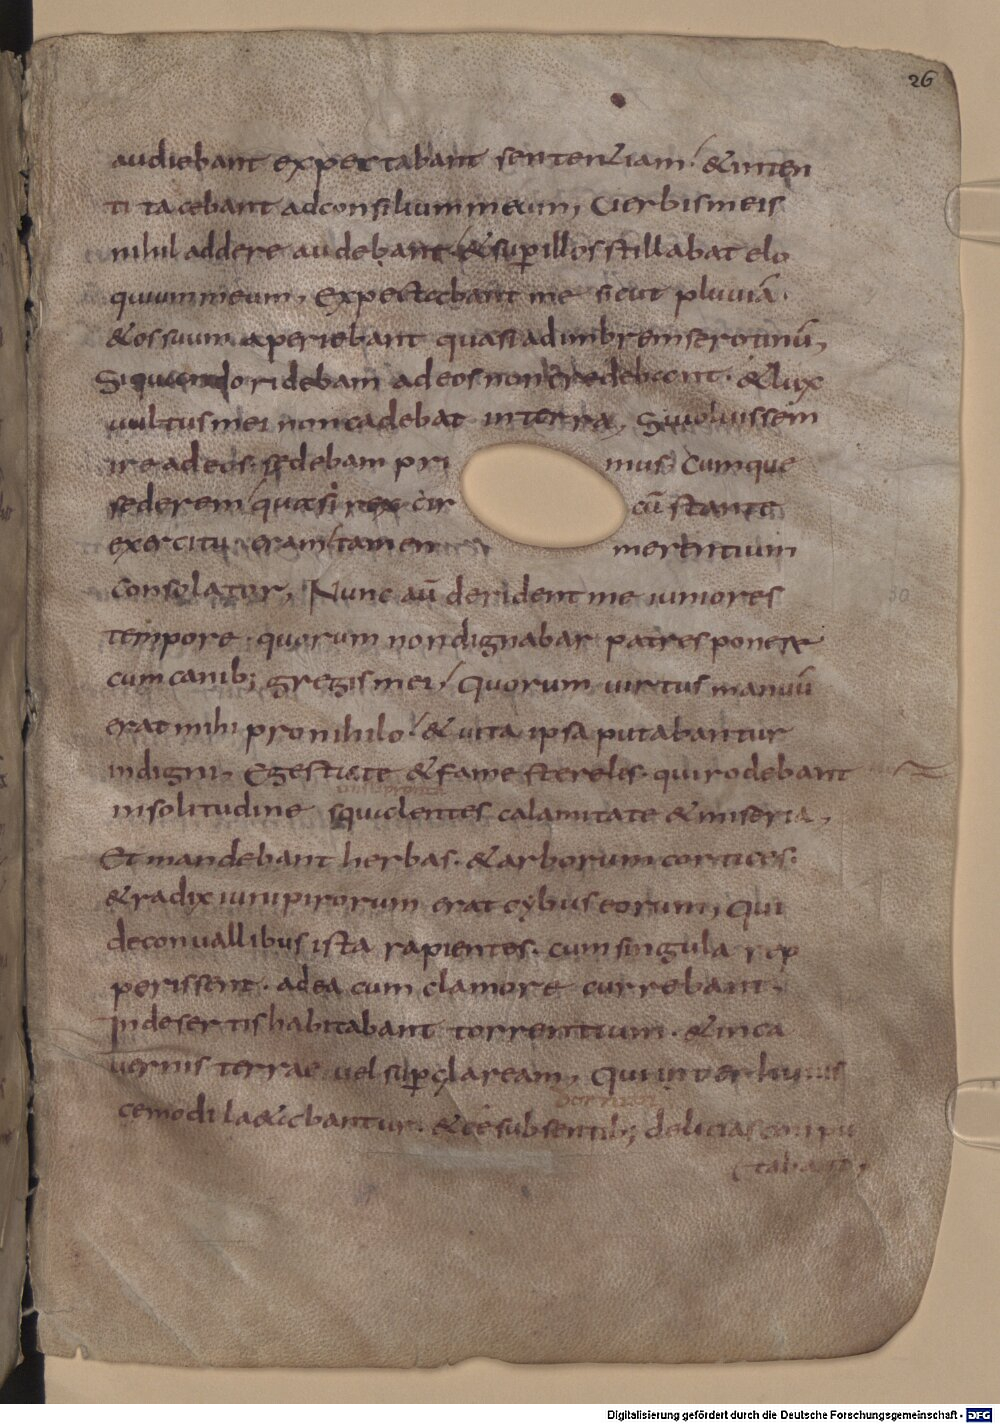 26
audiebant expectabant sententiam. & inten
ti tacebant ad consilium meum, Uerbis meis
nihil addere audebant & sup̄ illos stillabat elo
quium meum, Expectabant me sicut pluuiā.
& os suum aperiebant quasi ad imbrem serotinū,
Si quando ridebam ad eos non credebant. & lux
uultus mei non cadebat in terra, Si uoluissem
ire ad eos. sedebam pri mus Cumque
sederem quasi rex cir cū stante
exercitu eram tamen merentium
consolator, Nunc aū derident me iuniores
tempore. quorum non dignabar patres ponere
cum canib; gregis mei. Quorum uirtus manuū
erat mihi pro nihilo. & uita ipsa putabantur
indigni, Egestate & fame stereles. qui rodebant
in solitudine squalentes calamitate & miseria,
Et mandebant herbas. & arborum cortices.
& radix iunipirorum erat cybus eorum, Qui
de conuallibus ista rapientes. cum singula rep
perissent. ad ea cum clamore currebant.
In desertis habitabant torrentium. & in ca
uernis terrae uel sup̄ glaream, Qui inter huius
cemodi laetabantur. & esse sub sentib; delicias conpu
tabant,
30
Digitalisierung gefördert durch die Deutsche Forschungsgemeinschaft - DFG